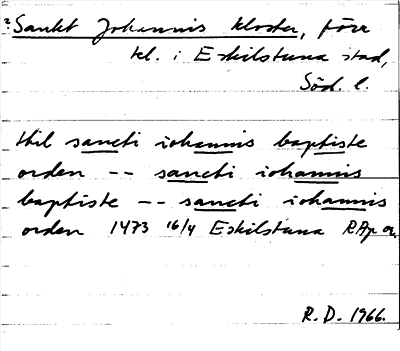 Sankt Johannis kloster, förr
kl. i Eskilstuna stad,
Söd. l.
thil sancti iohannis baptiste
orden -- sancti iohannis
baptiste -- sancti iohannis
orden 1473 16/4 Eskilstuna RAp or.
R.D. 1966.